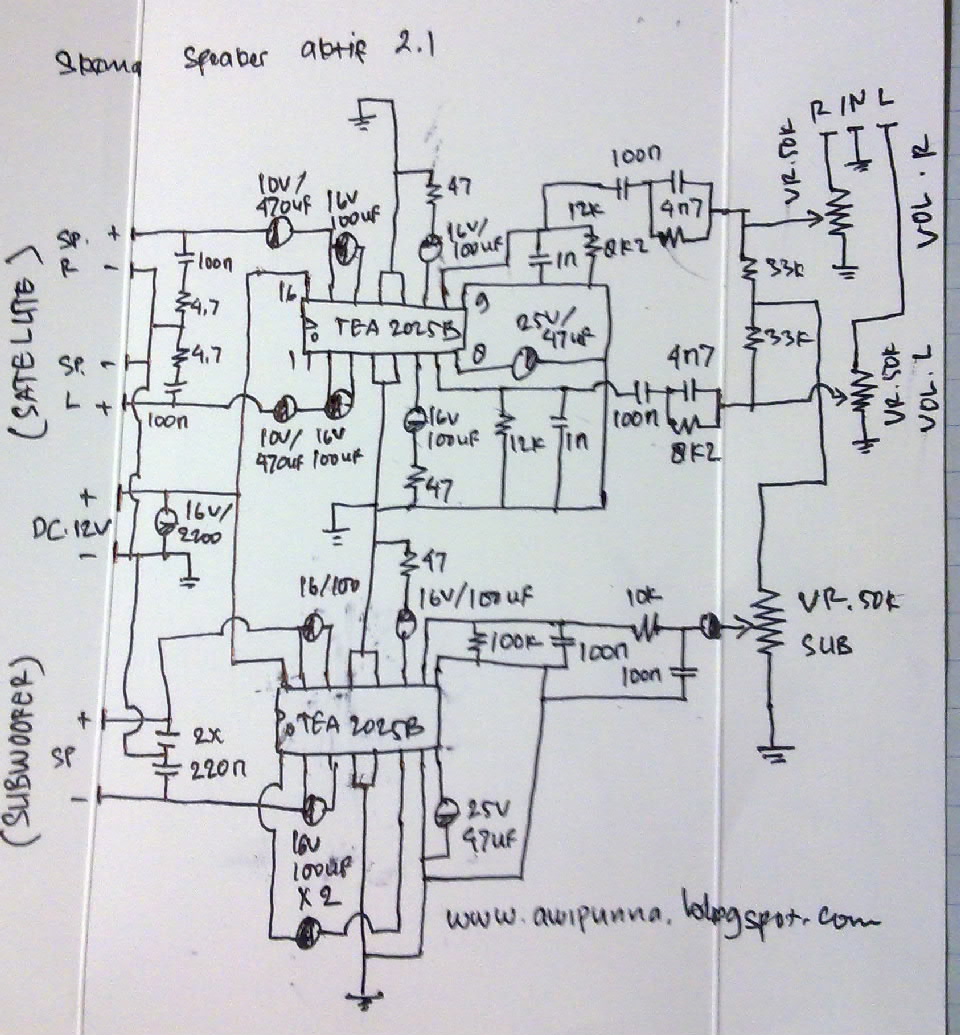 Skema speaker aktif 2.1
R IN L
VR.50K
VOL.R
100n
4n7
12K
8K2
1n
47
16V/
100uF
10V/
470uF
16V
100uF
SP. +
R -
(SATELLITE)
100n
4.7
4.7
SP. -
L +
100n
16
9
TEA 2025B
1
8
25V/
47uF
33K
33K
VR.50K
VOL.L
4n7
100n
8K2
10V/
470uF
16V
100uF
16V
100uF
47
12K
1n
+
DC.12V
-
16V/
2200
47
16/100
16V/100uF
10K
100K
100n
100n
VR.50K
SUB
(SUBWOOFER)
+
SP
-
2X
220n
TEA 2025B
16V
100uF
X 2
25V
47uF
www.awipunna.blogspot.com